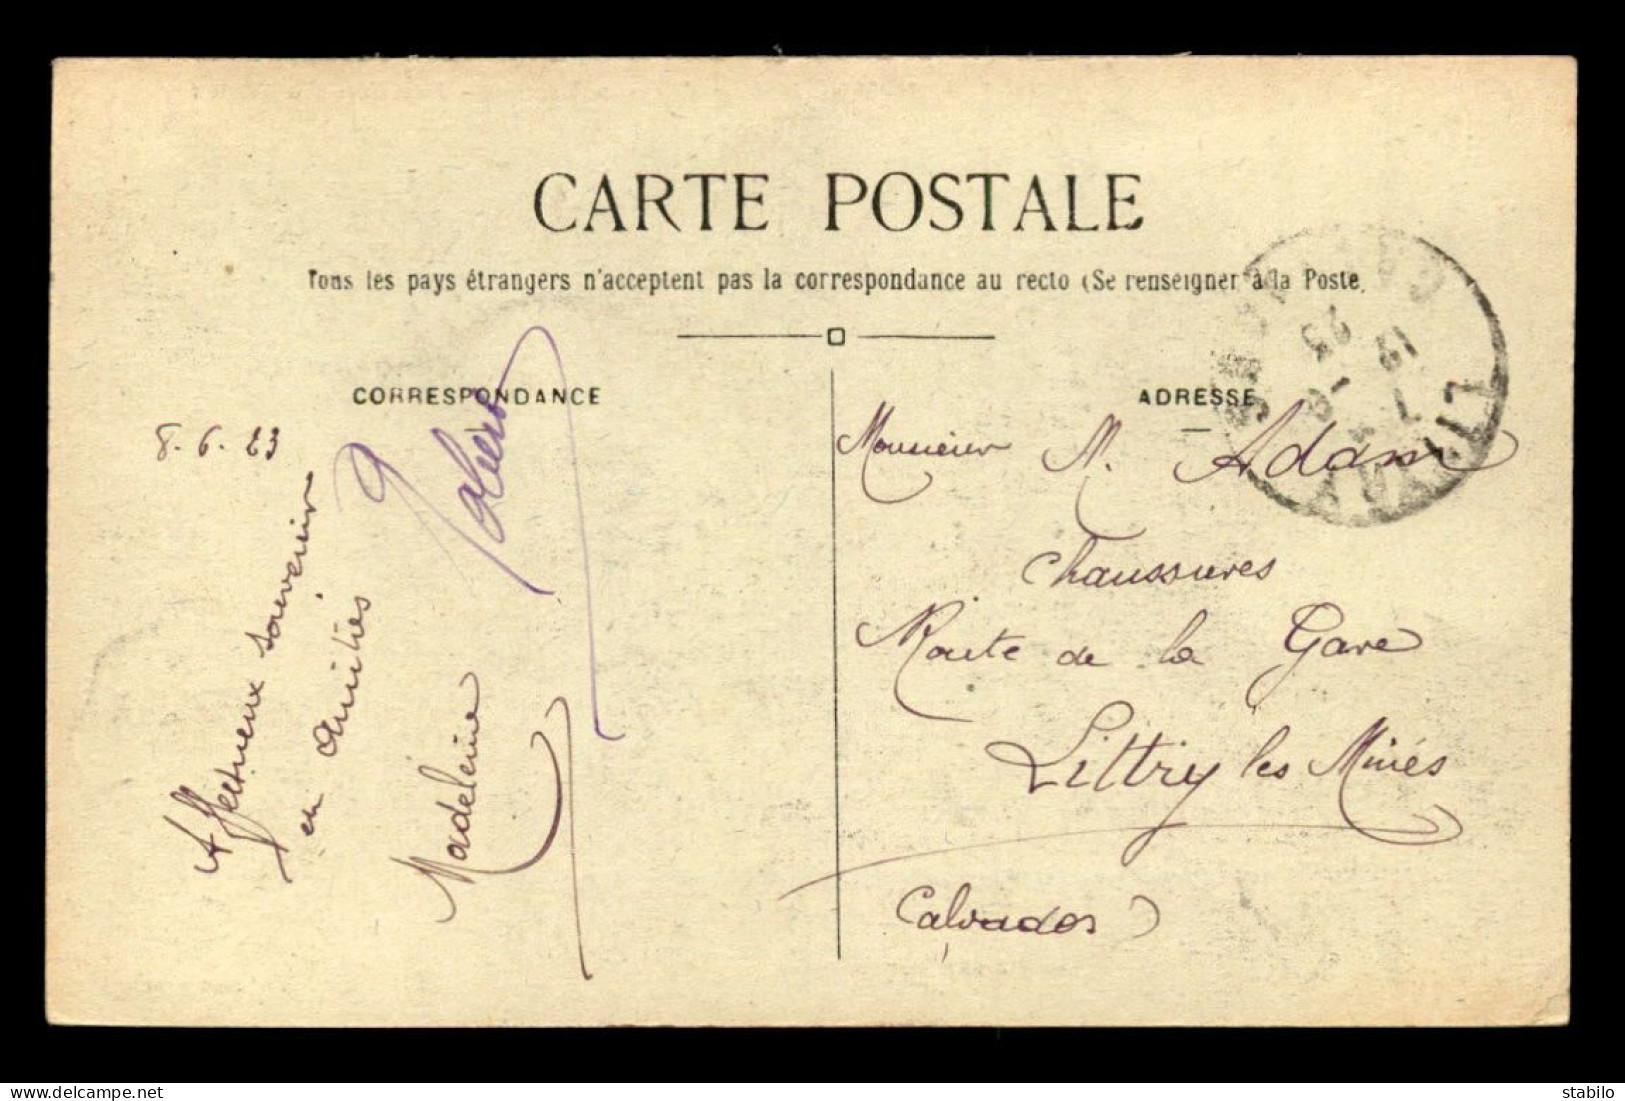 CARTE POSTALE
Tous les pays étrangers n'acceptent pas la correspondance au recto (Se renseigner à la Poste.
CORRESPONDANCE
8.6.23
Affectueux souvenir
en amitiés
Madeleine
ADRESSE
Monsieur M. Adam
Chaussures
Route de la Gare
Littry les Mines
Calvados
CALVADOS
LITTRY
delcampe.net
stabilo